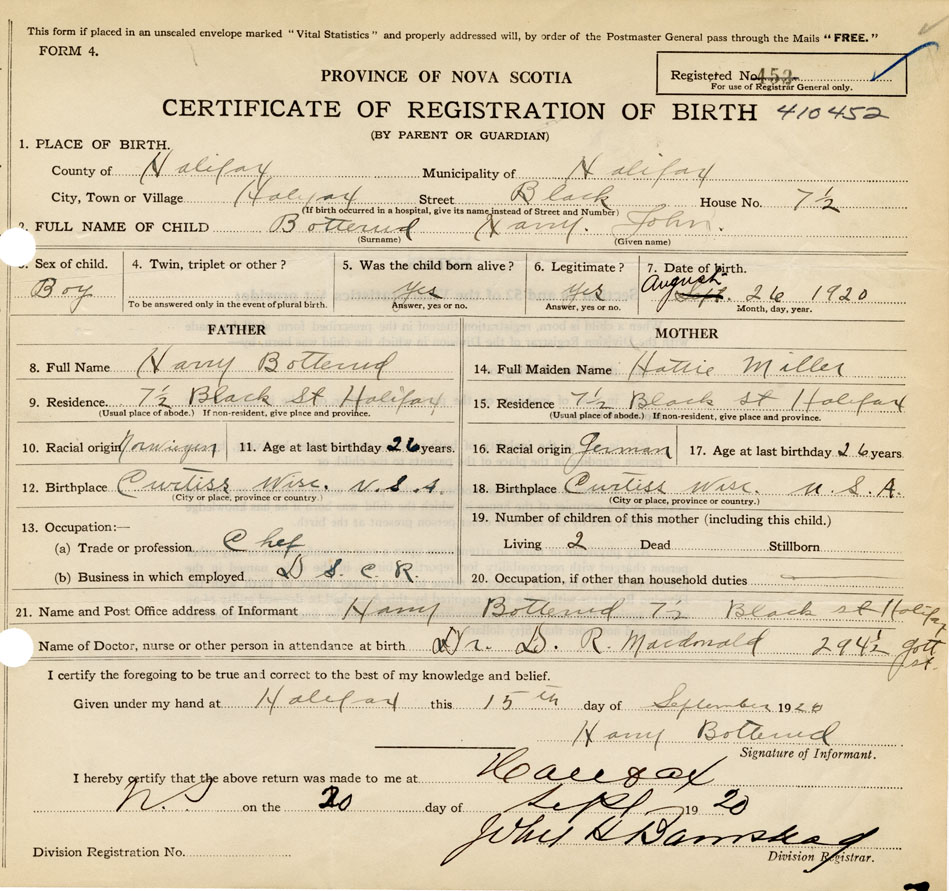 This form if placed in an unsealed envelope marked "Vital Statistics" and properly addressed will, by order of the Postmaster General pass through the Mails "FREE."
FORM 4.
PROVINCE OF NOVA SCOTIA
Registered No. 452
For use of Registrar General only.
CERTIFICATE OF REGISTRATION OF BIRTH 410452
(BY PARENT OR GUARDIAN)
1. PLACE OF BIRTH.
County of Halifax Municipality of Halifax
City, Town or Village Halifax Street Black House No. 7½
(If birth occurred in a hospital, give its name instead of Street and Number)
2. FULL NAME OF CHILD Botterud Harry. John.
(Surname) (Given name)
3. Sex of child. 4. Twin, triplet or other? 5. Was the child born alive? 6. Legitimate? 7. Date of birth.
Boy yes yes August Sept. 26 1920
To be answered only in the event of plural birth. Answer, yes or no. Answer, yes or no. Month, day, year.
FATHER
8. Full Name Harry Botterud
9. Residence. 7½ Black St Halifax
(Usual place of abode.) If non-resident, give place and province.
10. Racial origin Norwigen 11. Age at last birthday 26 years.
12. Birthplace Curtiss Wisc. U.S.A.
(City or place, province or country.)
13. Occupation:—
(a) Trade or profession Chef
(b) Business in which employed D S. C R.
MOTHER
14. Full Maiden Name Hattie Miller
15. Residence 7½ Black st Halifax
(Usual place of abode.) If non-resident, give place and province.
16. Racial origin German 17. Age at last birthday 26 years
18. Birthplace Curtiss Wisc. U S A.
(City or place, province or country.)
19. Number of children of this mother (including this child.)
Living 2 Dead Stillborn
20. Occupation, if other than household duties
21. Name and Post Office address of Informant Harry Botterud 7½ Black st Halifax
Name of Doctor, nurse or other person in attendance at birth Dr. D. R. Macdonald 294½ Gott st.
I certify the foregoing to be true and correct to the best of my knowledge and belief.
Given under my hand at Halifax this 15th day of September 1920
Harry Botterud
Signature of Informant.
I hereby certify that the above return was made to me at Halifax
N.S on the 20 day of Sept 1920
John H Barnstead
Division Registrar.
Division Registration No.